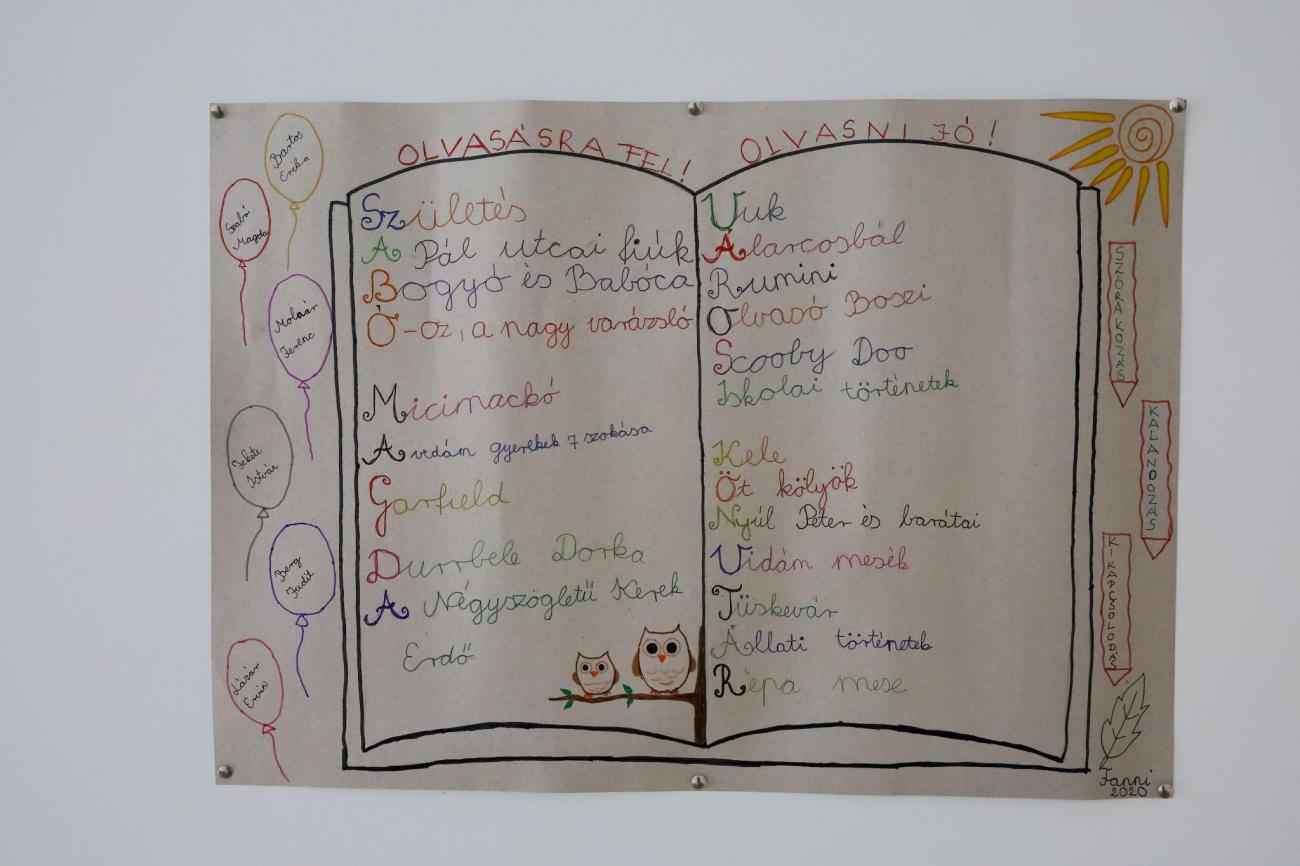 OLVASÁSRA FEL!
OLVASNI JÓ!
Bartos
Erika
Szabó
Magda
Molnár
Ferenc
Fekete
István
Berg
Judit
Lázár
Ervin
Születés
A Pál utcai fiúk
Bogyó és Babóca
Ó-oz, a nagy varázsló
Micimackó
A vidám gyerekek 7 szokása
Garfield
Durrbele Dorka
A Négyszögletű Kerek
Erdő
Vuk
Álarcosbál
Rumini
Olvasó Boszi
Scooby Doo
Iskolai történetek
Kele
Öt kölyök
Nyúl Péter és barátai
Vidám mesék
Tüskevár
Állati történetek
Répa mese
SZÓRAKOZÁS
KALANDOZÁS
KIKAPCSOLODÁS
Fanni
2020